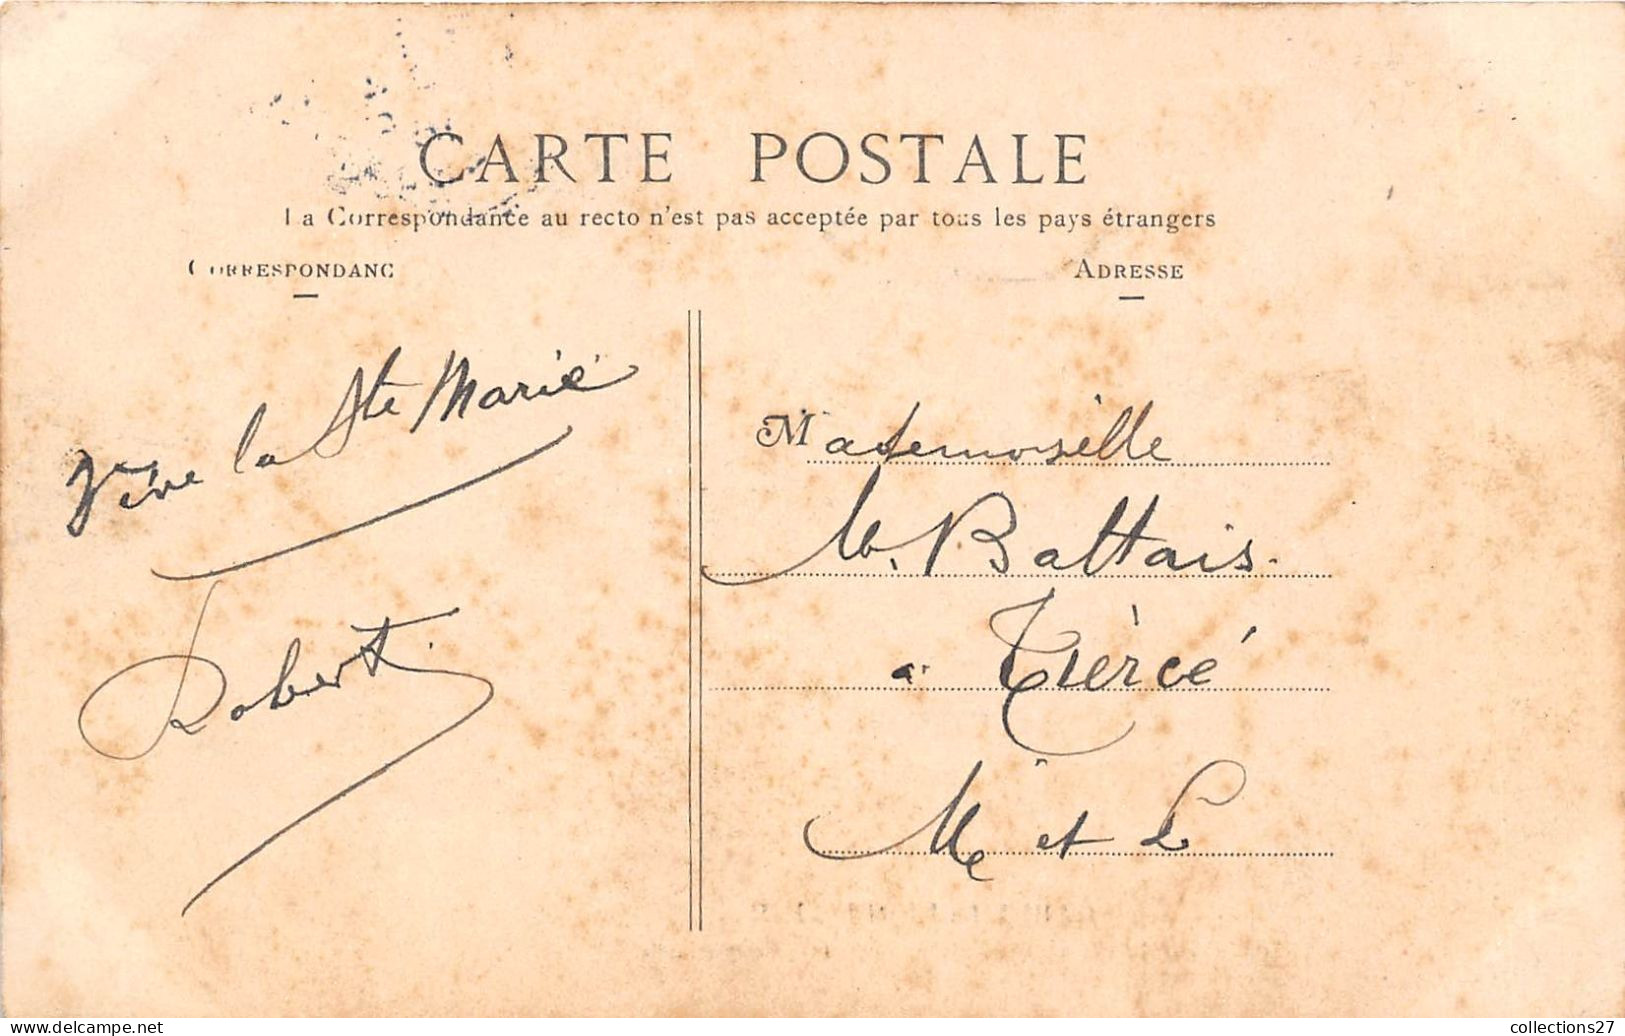 CARTE POSTALE
La Correspondance au recto n'est pas acceptée par tous les pays étrangers
CORRESPONDANC
ADRESSE
Vive la Ste Marie
Robert
Mademoiselle
M. Battais
a Tiercé
Me et L
collections27